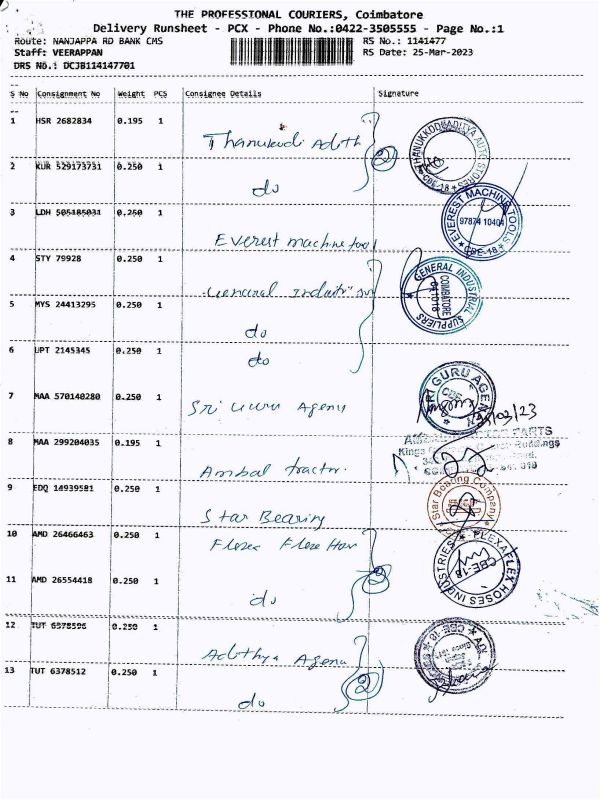 THE PROFESSIONAL COURIERS, Coimbatore
Delivery Runsheet - PCX - Phone No.:0422-3505555 - Page No.:1
Route: NANJAPPA RD BANK CMS RS No.: 1141477
Staff: VEERAPPAN RS Date: 25-Mar-2023
DRS No.: DCJB114147701
S No Consignment No Weight PCS Consignee Details Signature
1 HSR 2682834 0.195 1
Thanukodi Adith 2
THANUKKODI ADITYA AUTO STORES CBE-18
2 KUR 529173731 0.250 1
do
3 LDH 505185031 0.250 1
Everest machine tool
EVEREST MACHINE TOOLS 97874 10404 CBE-18
4 STY 79928 0.250 1
General
GENERAL INDUSTRIAL SUPPLIERS COIMBATORE 641018
5 MYS 24413295 0.250 1
do
6 UPT 2145345 0.250 1
do
7 MAA 570140280 0.250 1
Sri Guru Agenu
GURU AGEN
/03/23
8 MAA 299204035 0.195 1
Ambal tractor.
PARTS
Kings Buildings
9 EDQ 14939581 0.250 1
Star Bearing
Star Bearing Company
10 AMD 26466463 0.250 1
Flexa Flex Hos
FLEXAFLEX HOSES INDUSTRIES CBE-18
11 AMD 26554418 0.250 1
do 2
12 TUT 6378596 0.250 1
Adithya Agenu
CBE-18
13 TUT 6378512 0.250 1
do 2